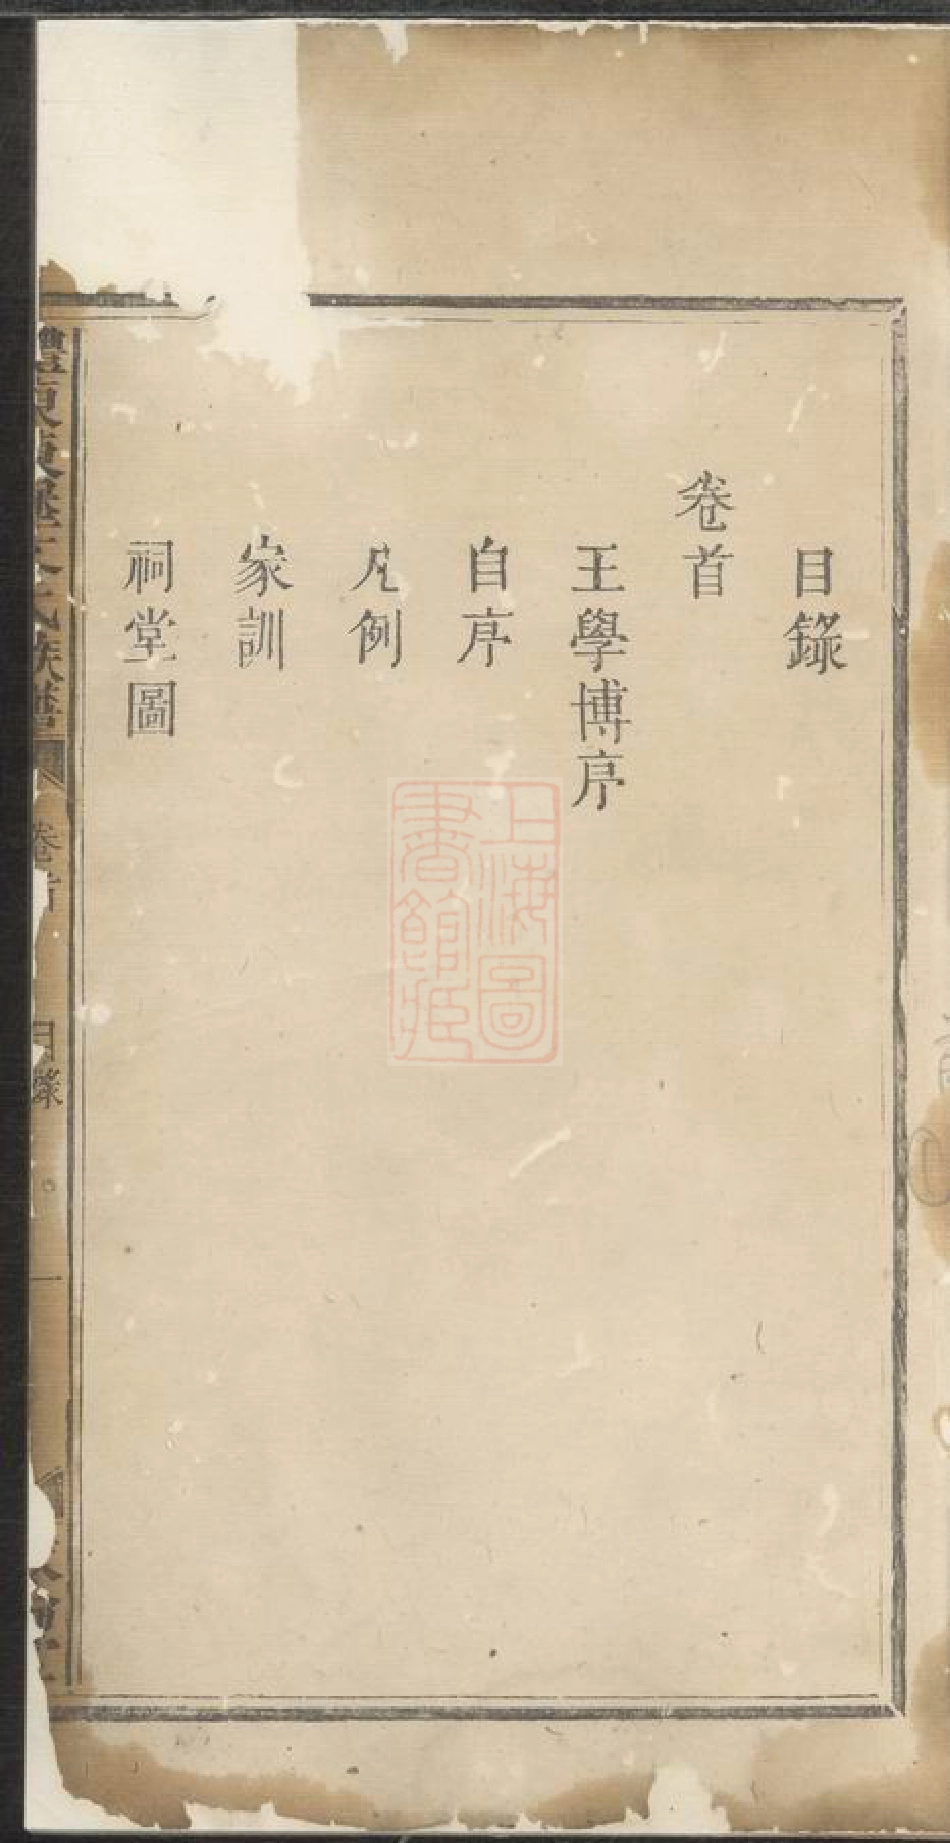 目錄
卷首
王學博序
自序
凡例
家訓
祠堂圖
氏族譜
卷首
目錄
一
上海圖
書館藏